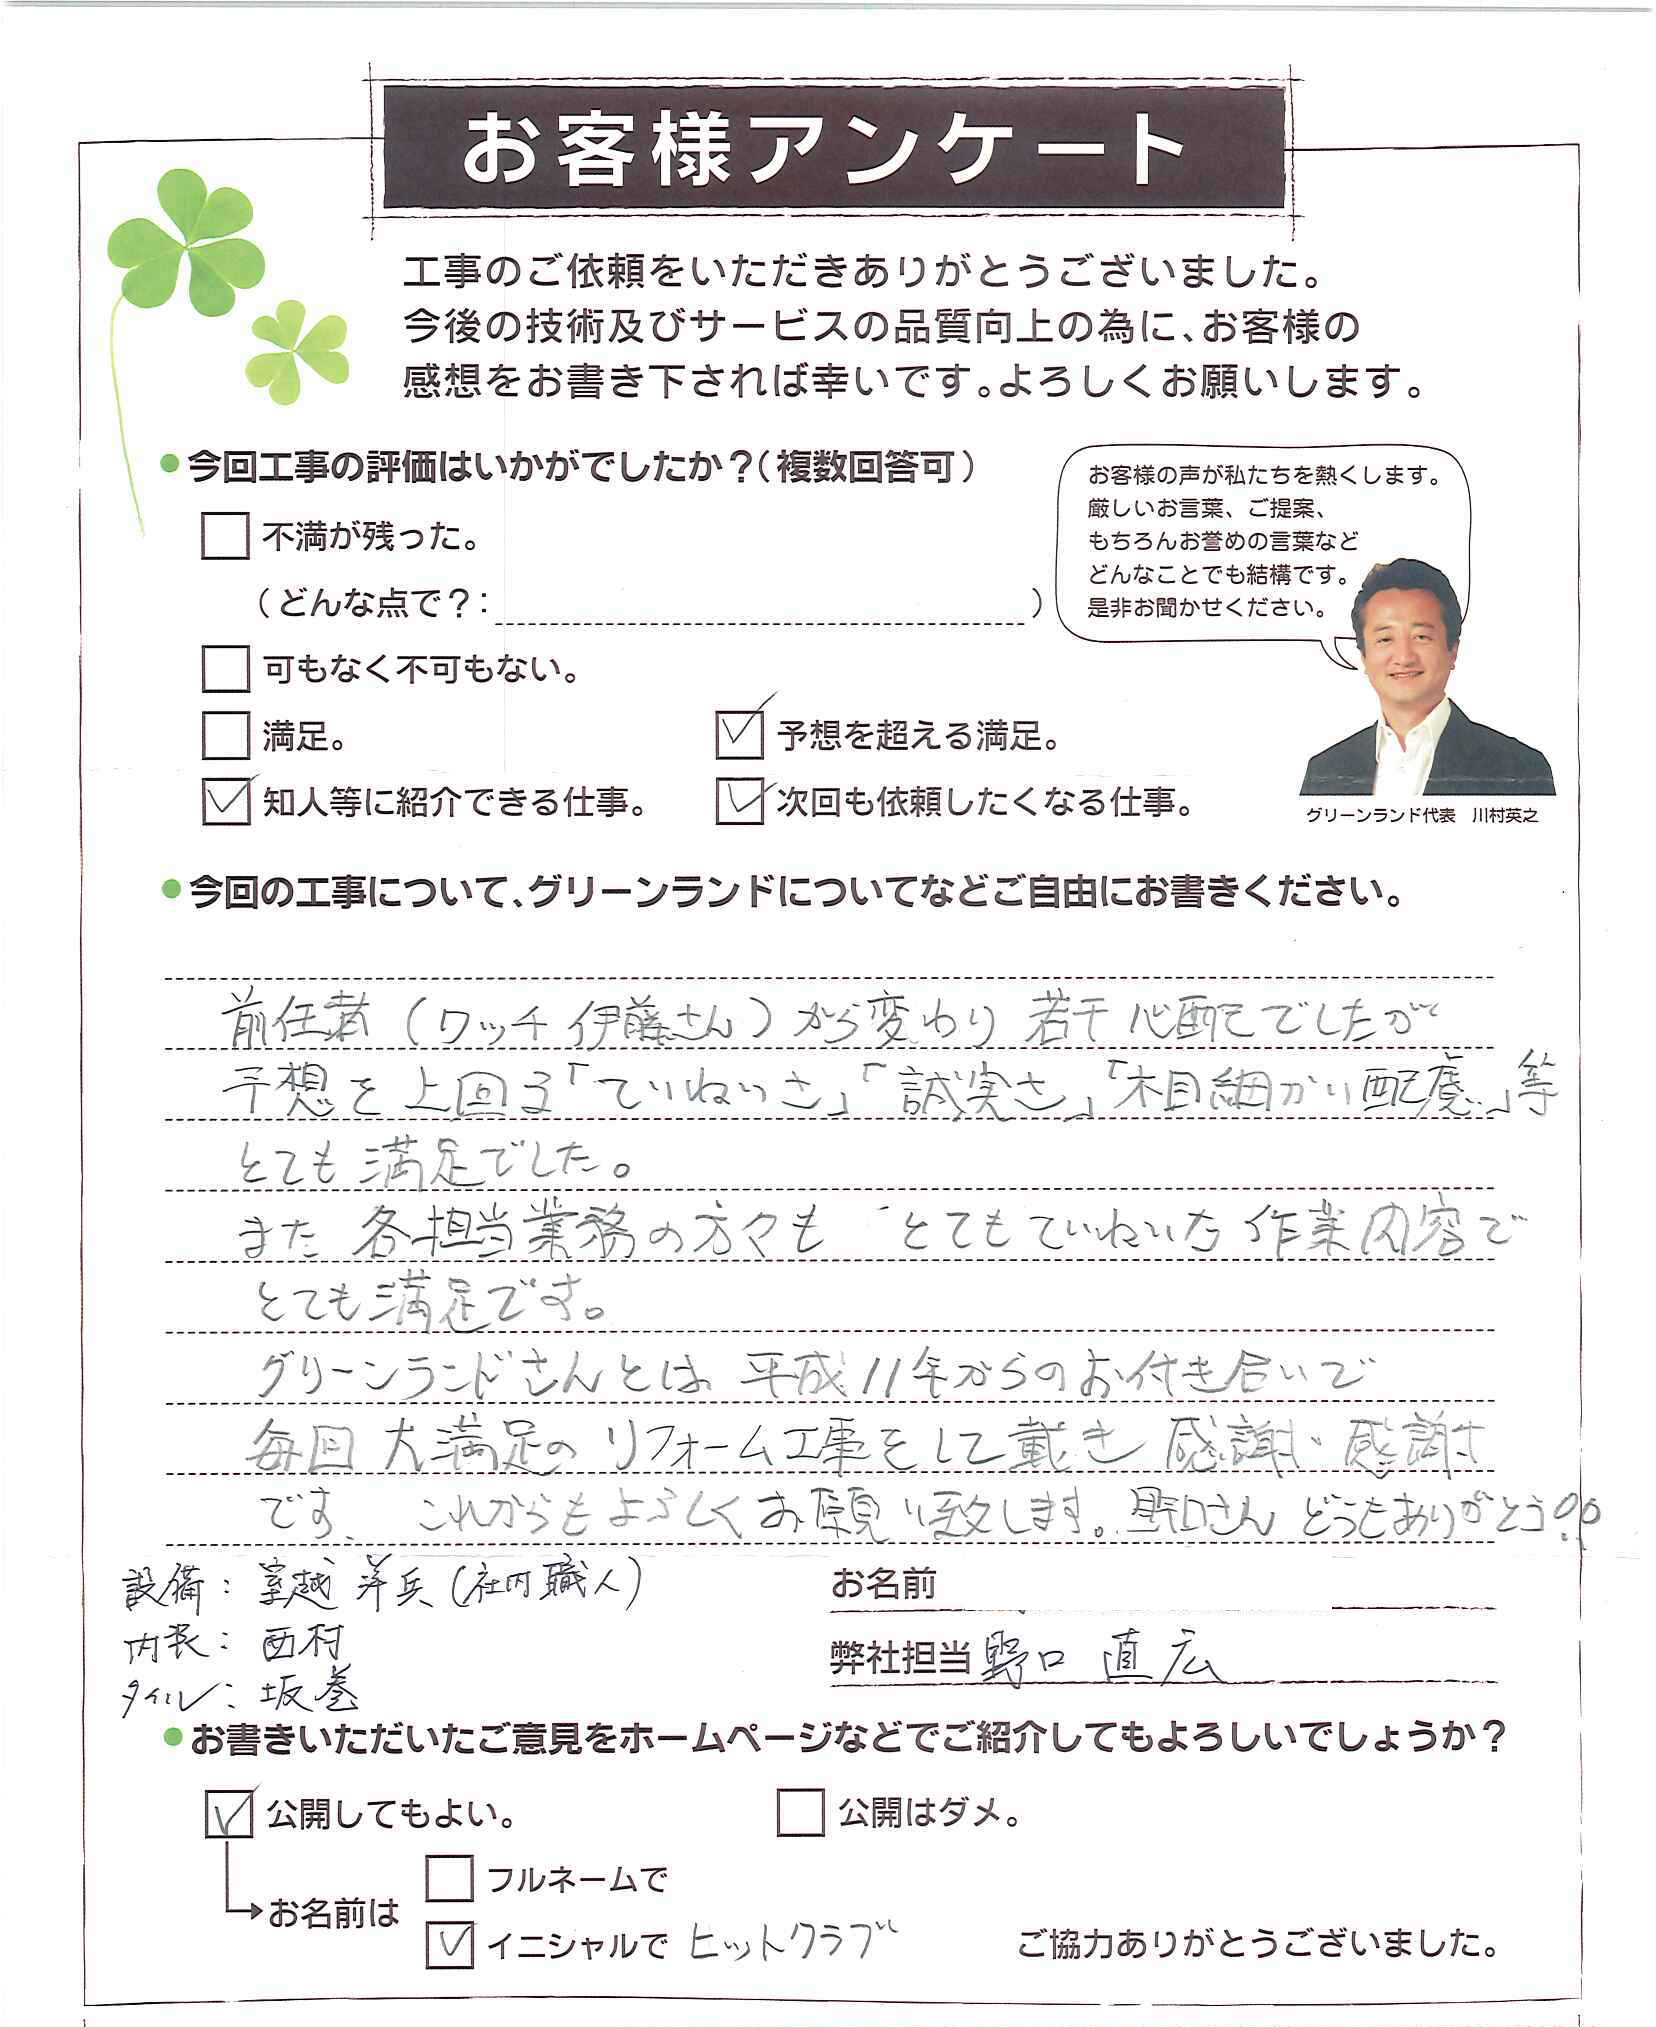 お客様アンケート
工事のご依頼をいただきありがとうございました。
今後の技術及びサービスの品質向上の為に、お客様の
感想をお書き下されば幸いです。よろしくお願いします。
●今回工事の評価はいかがでしたか?(複数回答可)
不満が残った。
(どんな点で?: )
可もなく不可もない。
満足。
予想を超える満足。
知人等に紹介できる仕事。
次回も依頼したくなる仕事。
お客様の声が私たちを熱くします。
厳しいお言葉、ご提案、
もちろんお誉めの言葉など
どんなことでも結構です。
是非お聞かせください。
グリーンランド代表 川村英之
●今回の工事について、グリーンランドについてなどご自由にお書きください。
前任者(ワッチ 伊藤さん)から変わり 若干 心配でしたが
予想を上回る「ていねいさ」「誠実さ」「木目細かい配慮」等
とても 満足でした。
また 各担当業務の方々も とてもていねいな 作業内容で
とても満足です。
グリーンランドさんとは 平成11年からのお付き合いで
毎回 大満足の リフォーム工事をして戴き 感謝・感謝
です、 これからもよろしくお願い致します。野口さん どうもありがとう!!
設備: 室越 洋兵(社内職人)
内装: 西村
タイル: 坂巻
お名前
弊社担当 野口 直広
●お書きいただいたご意見をホームページなどでご紹介してもよろしいでしょうか?
公開してもよい。
公開はダメ。
お名前は
フルネームで
イニシャルで ヒットクラブ
ご協力ありがとうございました。